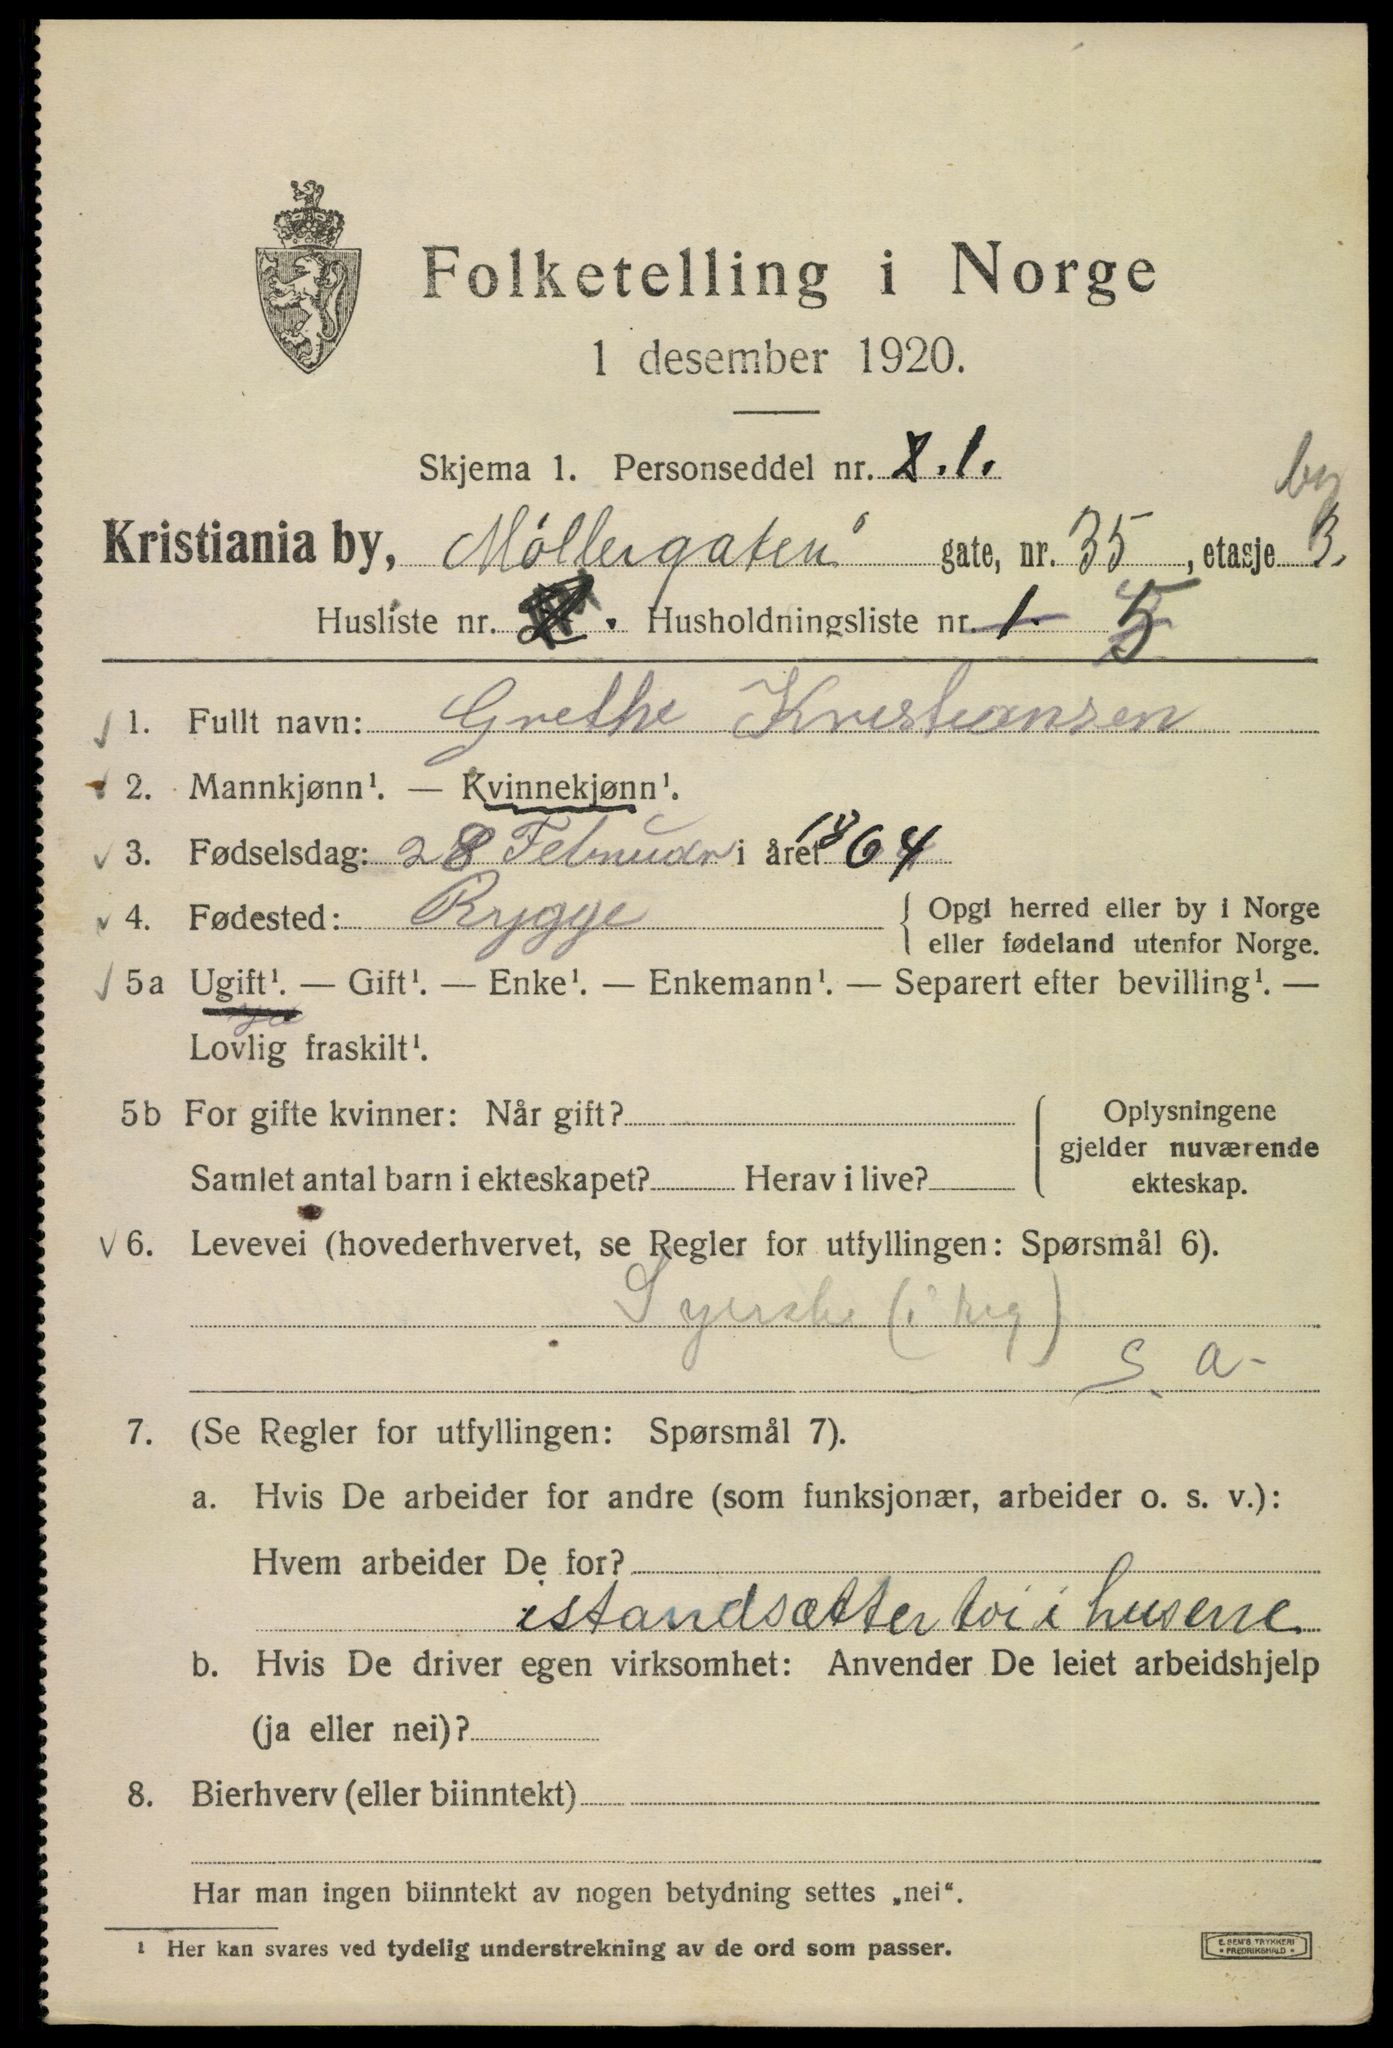 Folketelling i Norge
1 desember 1920.
Skjema 1. Personseddel nr. 1.
by
Kristiania by, Möllergaten gate, nr. 35, etasje 3.
Husliste nr. Husholdningsliste nr. 1. 5
1. Fullt navn: Grethe Kristiansen
2. Mannkjønn¹. — Kvinnekjønn¹.
3. Fødselsdag: 28 Februar i året 1864
4. Fødested: Rygge { Opgi herred eller by i Norge
eller fødeland utenfor Norge.
5a Ugift¹. — Gift¹. — Enke¹. — Enkemann¹. — Separert efter bevilling¹. —
Lovlig fraskilt¹.
5b For gifte kvinner: Når gift? { Oplysningene
gjelder nuværende
Samlet antal barn i ekteskapet? Herav i live? ekteskap.
6. Levevei (hovederhvervet, se Regler for utfyllingen: Spørsmål 6).
Syerske
s. a-
7. (Se Regler for utfyllingen: Spørsmål 7).
a. Hvis De arbeider for andre (som funksjonær, arbeider o. s. v.):
Hvem arbeider De for?
istandsætter toi i husene
b. Hvis De driver egen virksomhet: Anvender De leiet arbeidshjelp
(ja eller nei)?
8. Bierhverv (eller biinntekt)
Har man ingen biinntekt av nogen betydning settes „nei“.
¹ Her kan svares ved tydelig understrekning av de ord som passer.
E. SEM'S TRYKKERI
• FREDRIKSHALD •